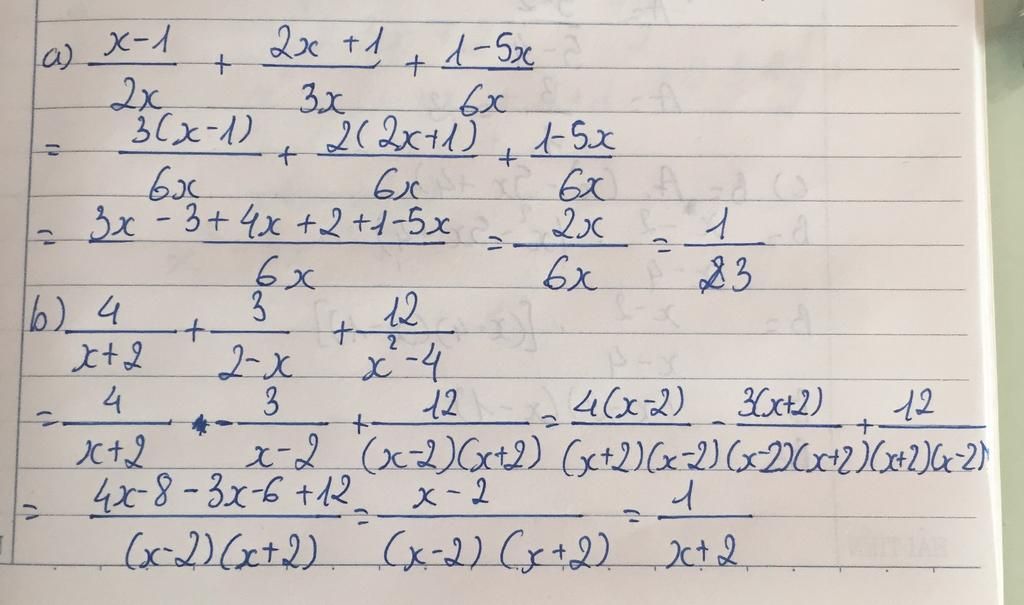 a) (x-1)/(2x) + (2x+1)/(3x) + (1-5x)/(6x)
= 3(x-1)/(6x) + 2(2x+1)/(6x) + (1-5x)/(6x)
= (3x-3+4x+2+1-5x)/(6x) = 2x/(6x) = 1/3
b) 4/(x+2) + 3/(2-x) + 12/(x²-4)
= 4/(x+2) - 3/(x-2) + 12/((x-2)(x+2)) = 4(x-2)/((x+2)(x-2)) - 3(x+2)/((x-2)(x+2)) + 12/((x+2)(x-2))
= (4x-8-3x-6+12)/((x-2)(x+2)) = (x-2)/((x-2)(x+2)) = 1/(x+2)